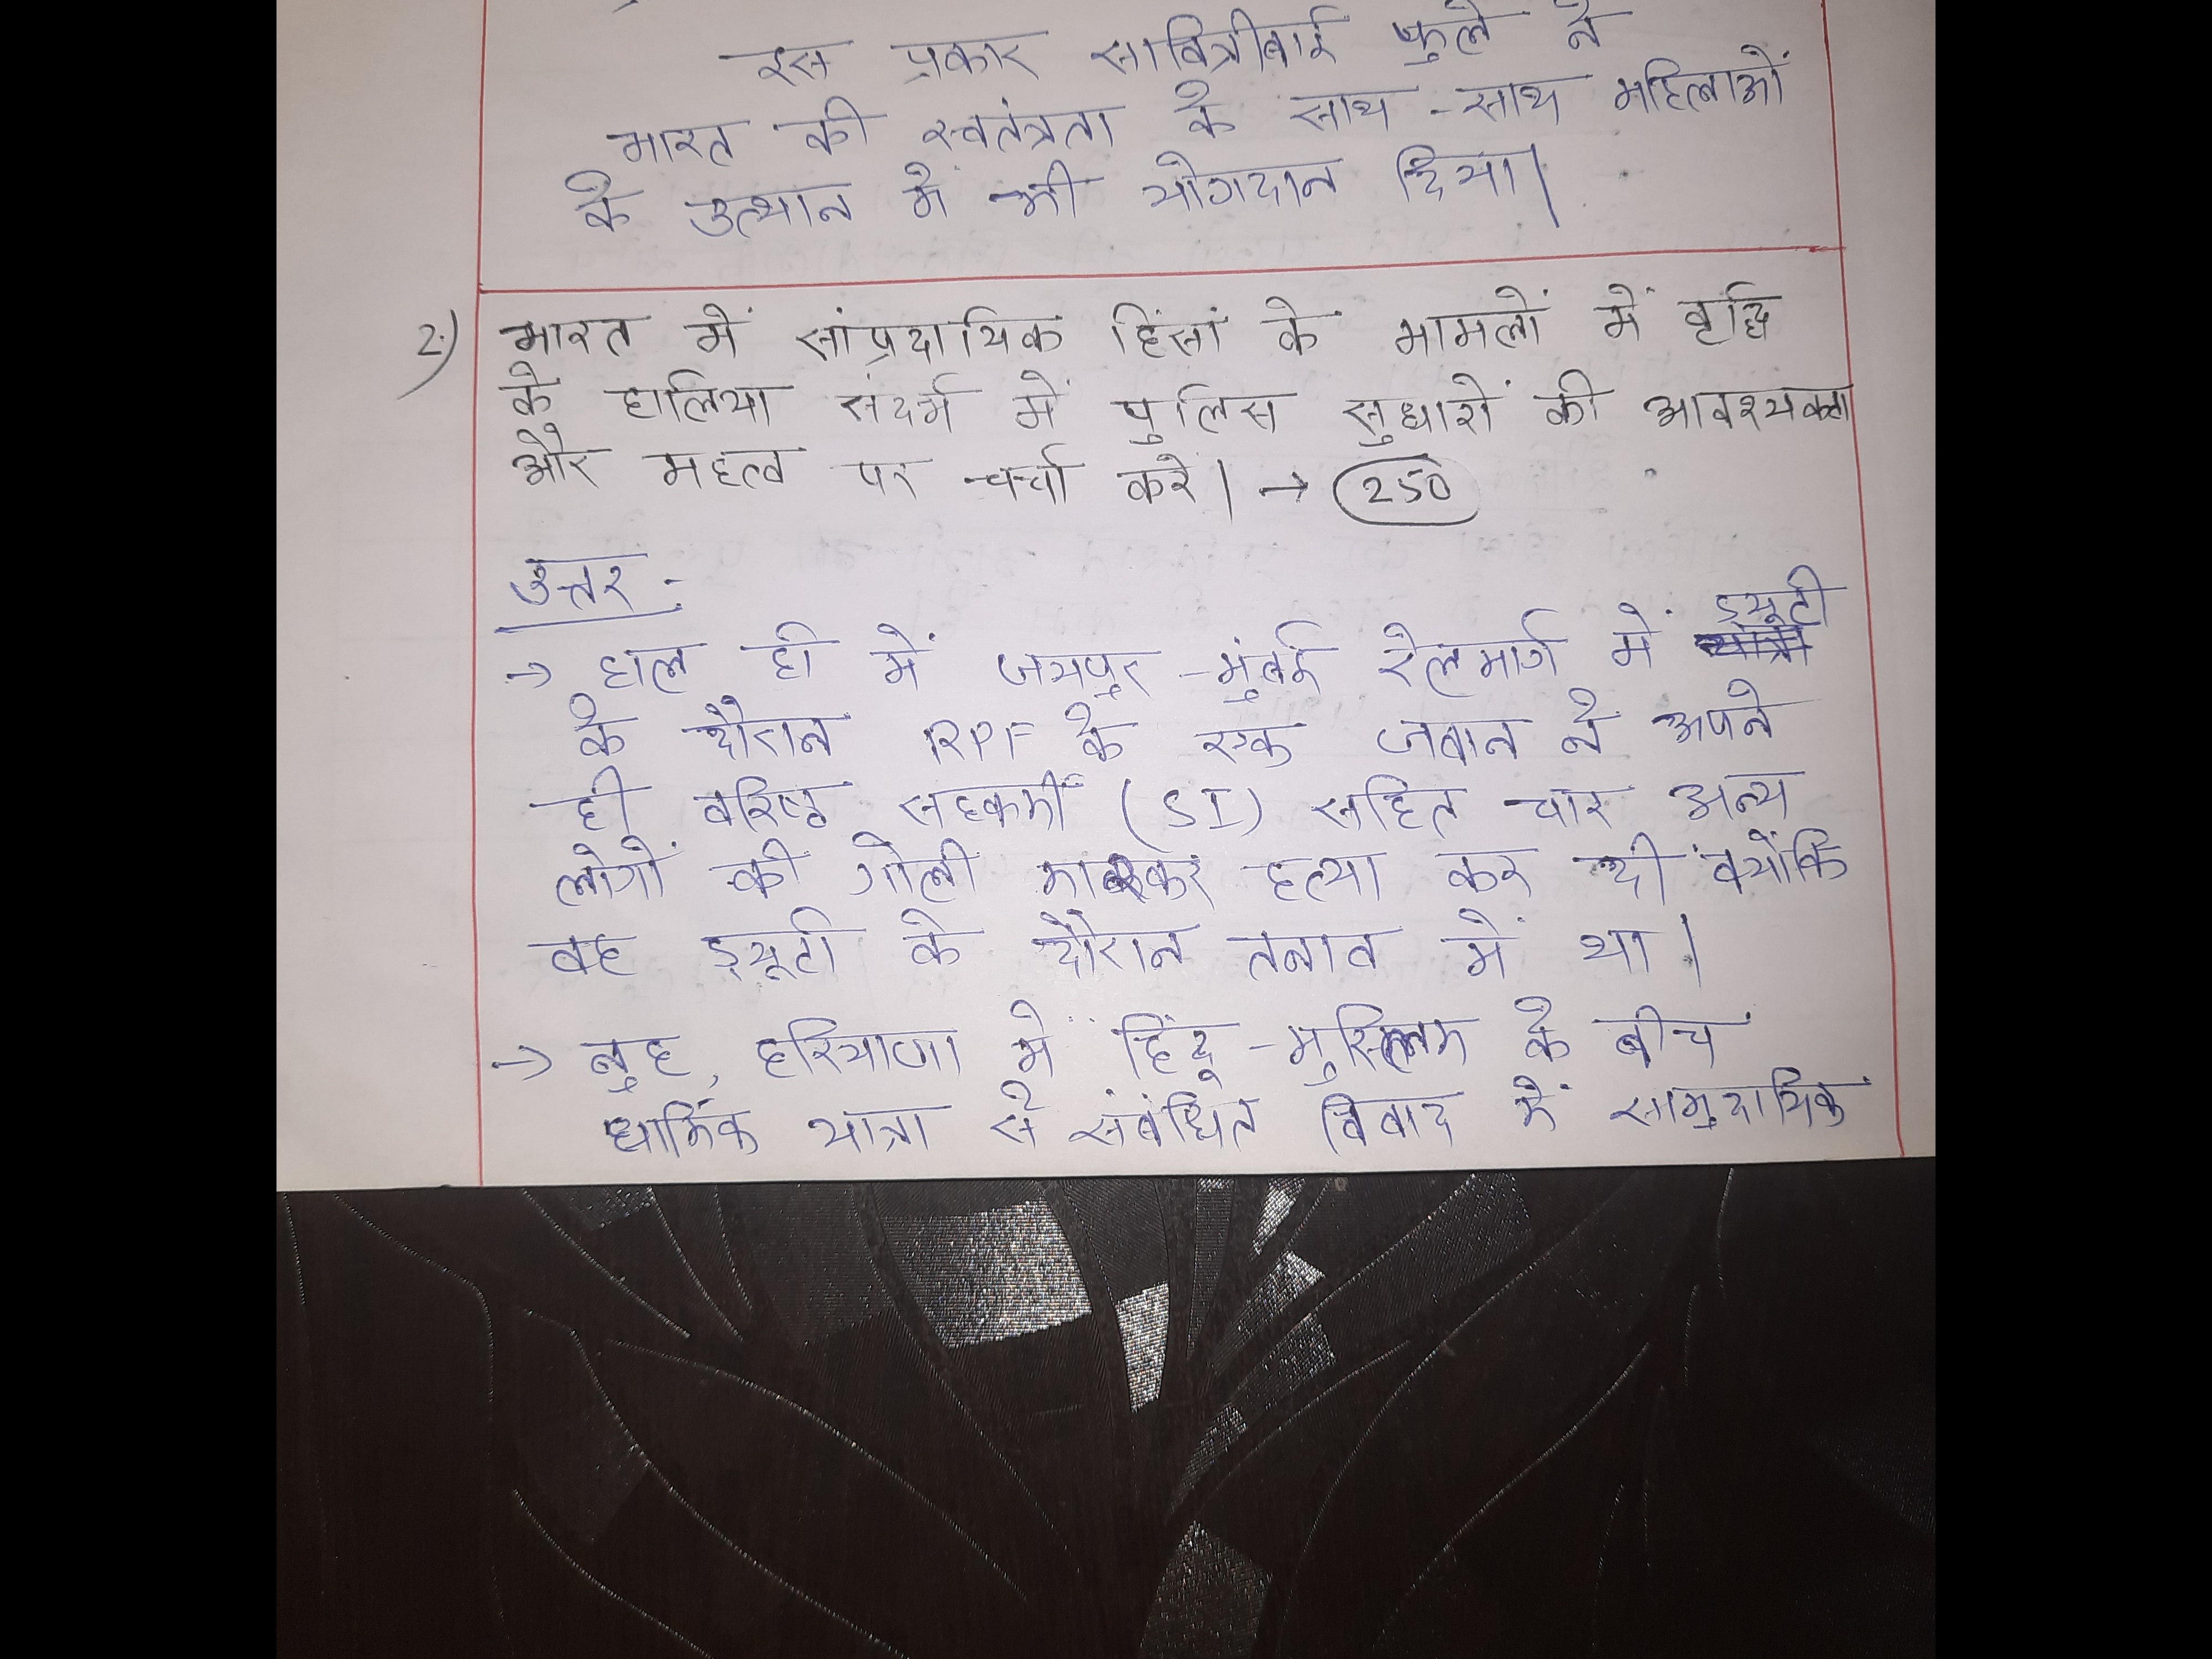 इस प्रकार सावित्रीबाई फुले ने
भारत की स्वतंत्रता के साथ-साथ महिलाओं
के उत्थान में भी योगदान दिया।
2.) भारत में सांप्रदायिक हिंसां के मामलों में वृद्धि
के हालिया संदर्भ में पुलिस सुधारों की आवश्यकता
और महत्व पर चर्चा करें। → 250
उत्तर :-
→ हाल ही में जयपुर-मुंबई रेलमार्ग में ड्यूटी
के दौरान RPF के एक जवान ने अपने
ही वरिष्ठ सहकर्मी (SI) सहित चार अन्य
लोगों की गोली मारकर हत्या कर दी क्योंकि
वह ड्यूटी के दौरान तनाव में था।
→ नुह, हरियाणा में हिंदू-मुस्लिम के बीच
धार्मिक यात्रा से संबंधित विवाद में सामुदायिक